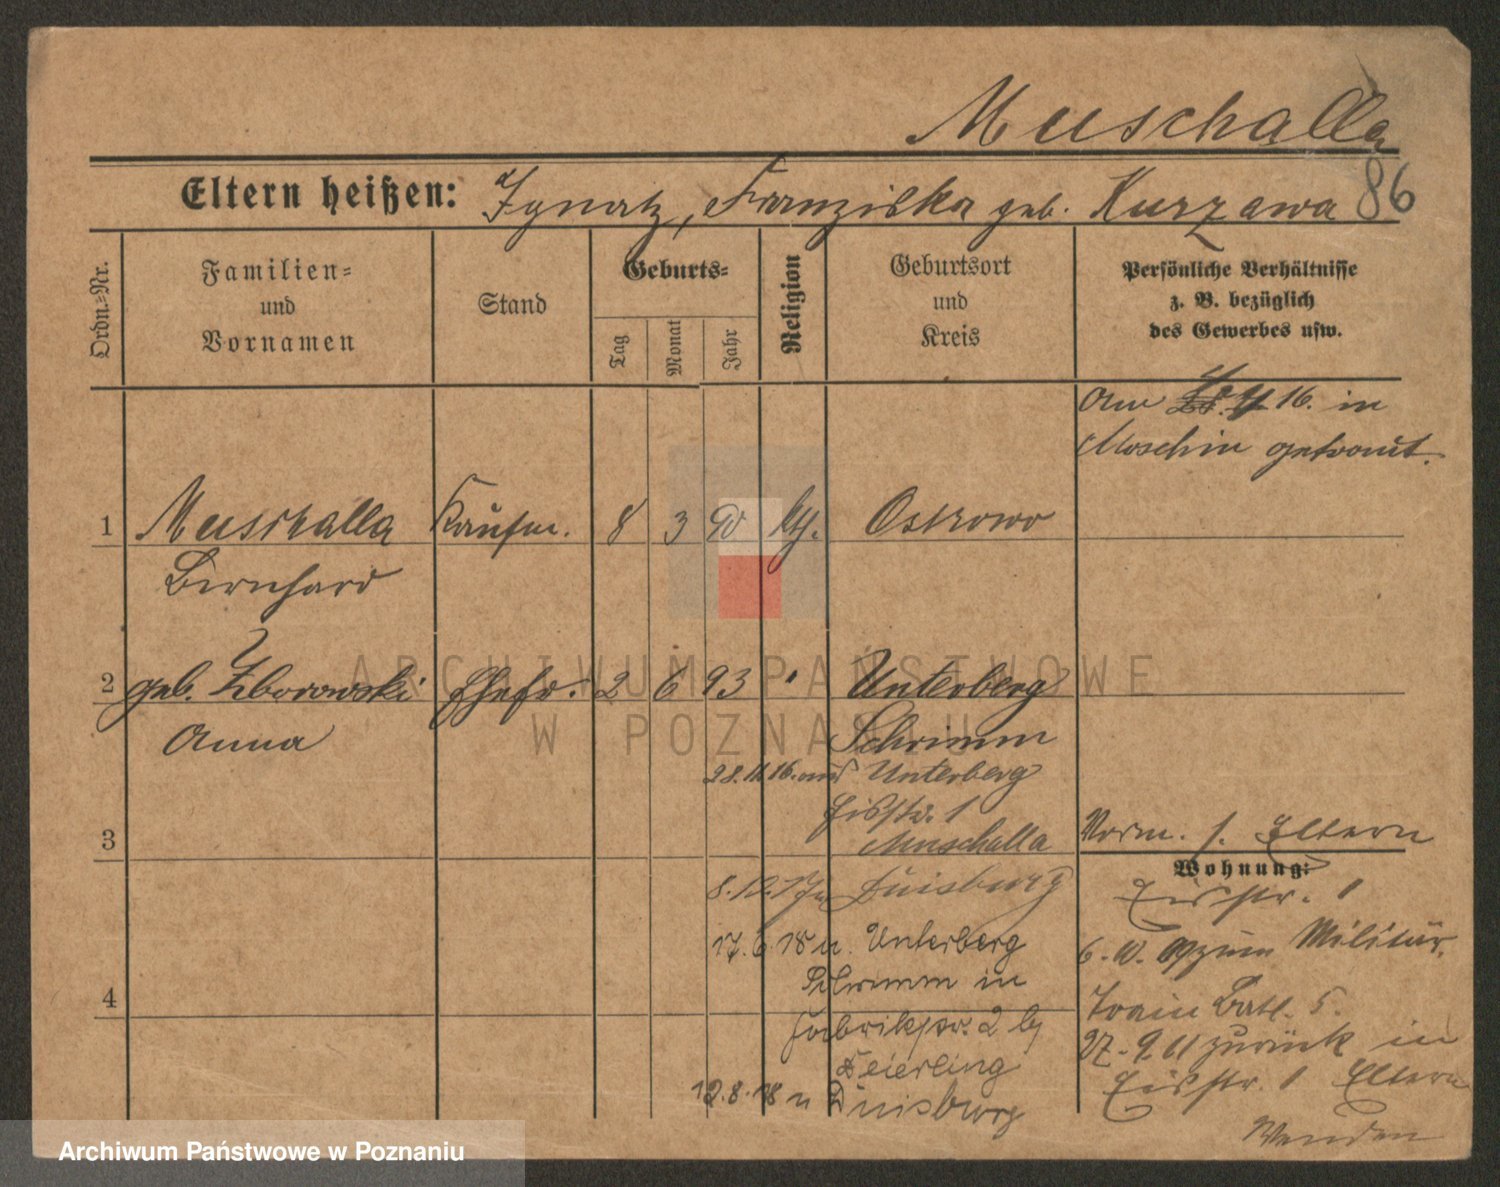 Muschalla
86
Eltern heißen: Ignatz, Franziska geb. Kurzawa
Ordn.=Nr.
Familien=
und
Vornamen
Stand
Geburts=
Tag
Monat
Jahr
Religion
Geburtsort
und
Kreis
Persönliche Verhältnisse
z. B. bezüglich
des Gewerbes usw.
Am 16. in
Moschin getraut.
1 Muschalla Kaufm. 8 3 90 kth. Ostrowo
Bernhard
2 geb. Zborowski Ehefr. 2 6 93 " Unterberg
Anna Schrimm
28.11.16. nach Unterberg
Eisstr. 1
Muschalla
3
Vorm. s. Eltern
Wohnung:
Eisstr. 1
6.10.09 zum Militär.
Train Batl. 5.
27.9.11 zurück in
Eisstr. 1 Eltern
Wenden
8.12.17 n Duisburg
17.6.18 n. Unterberg
Schrimm in
4
Fabrikstr. 2 by
Zeierling
12.8.18 n Duisburg
ARCHIWUM PAŃSTWOWE
W POZNANIU
Archiwum Państwowe w Poznaniu